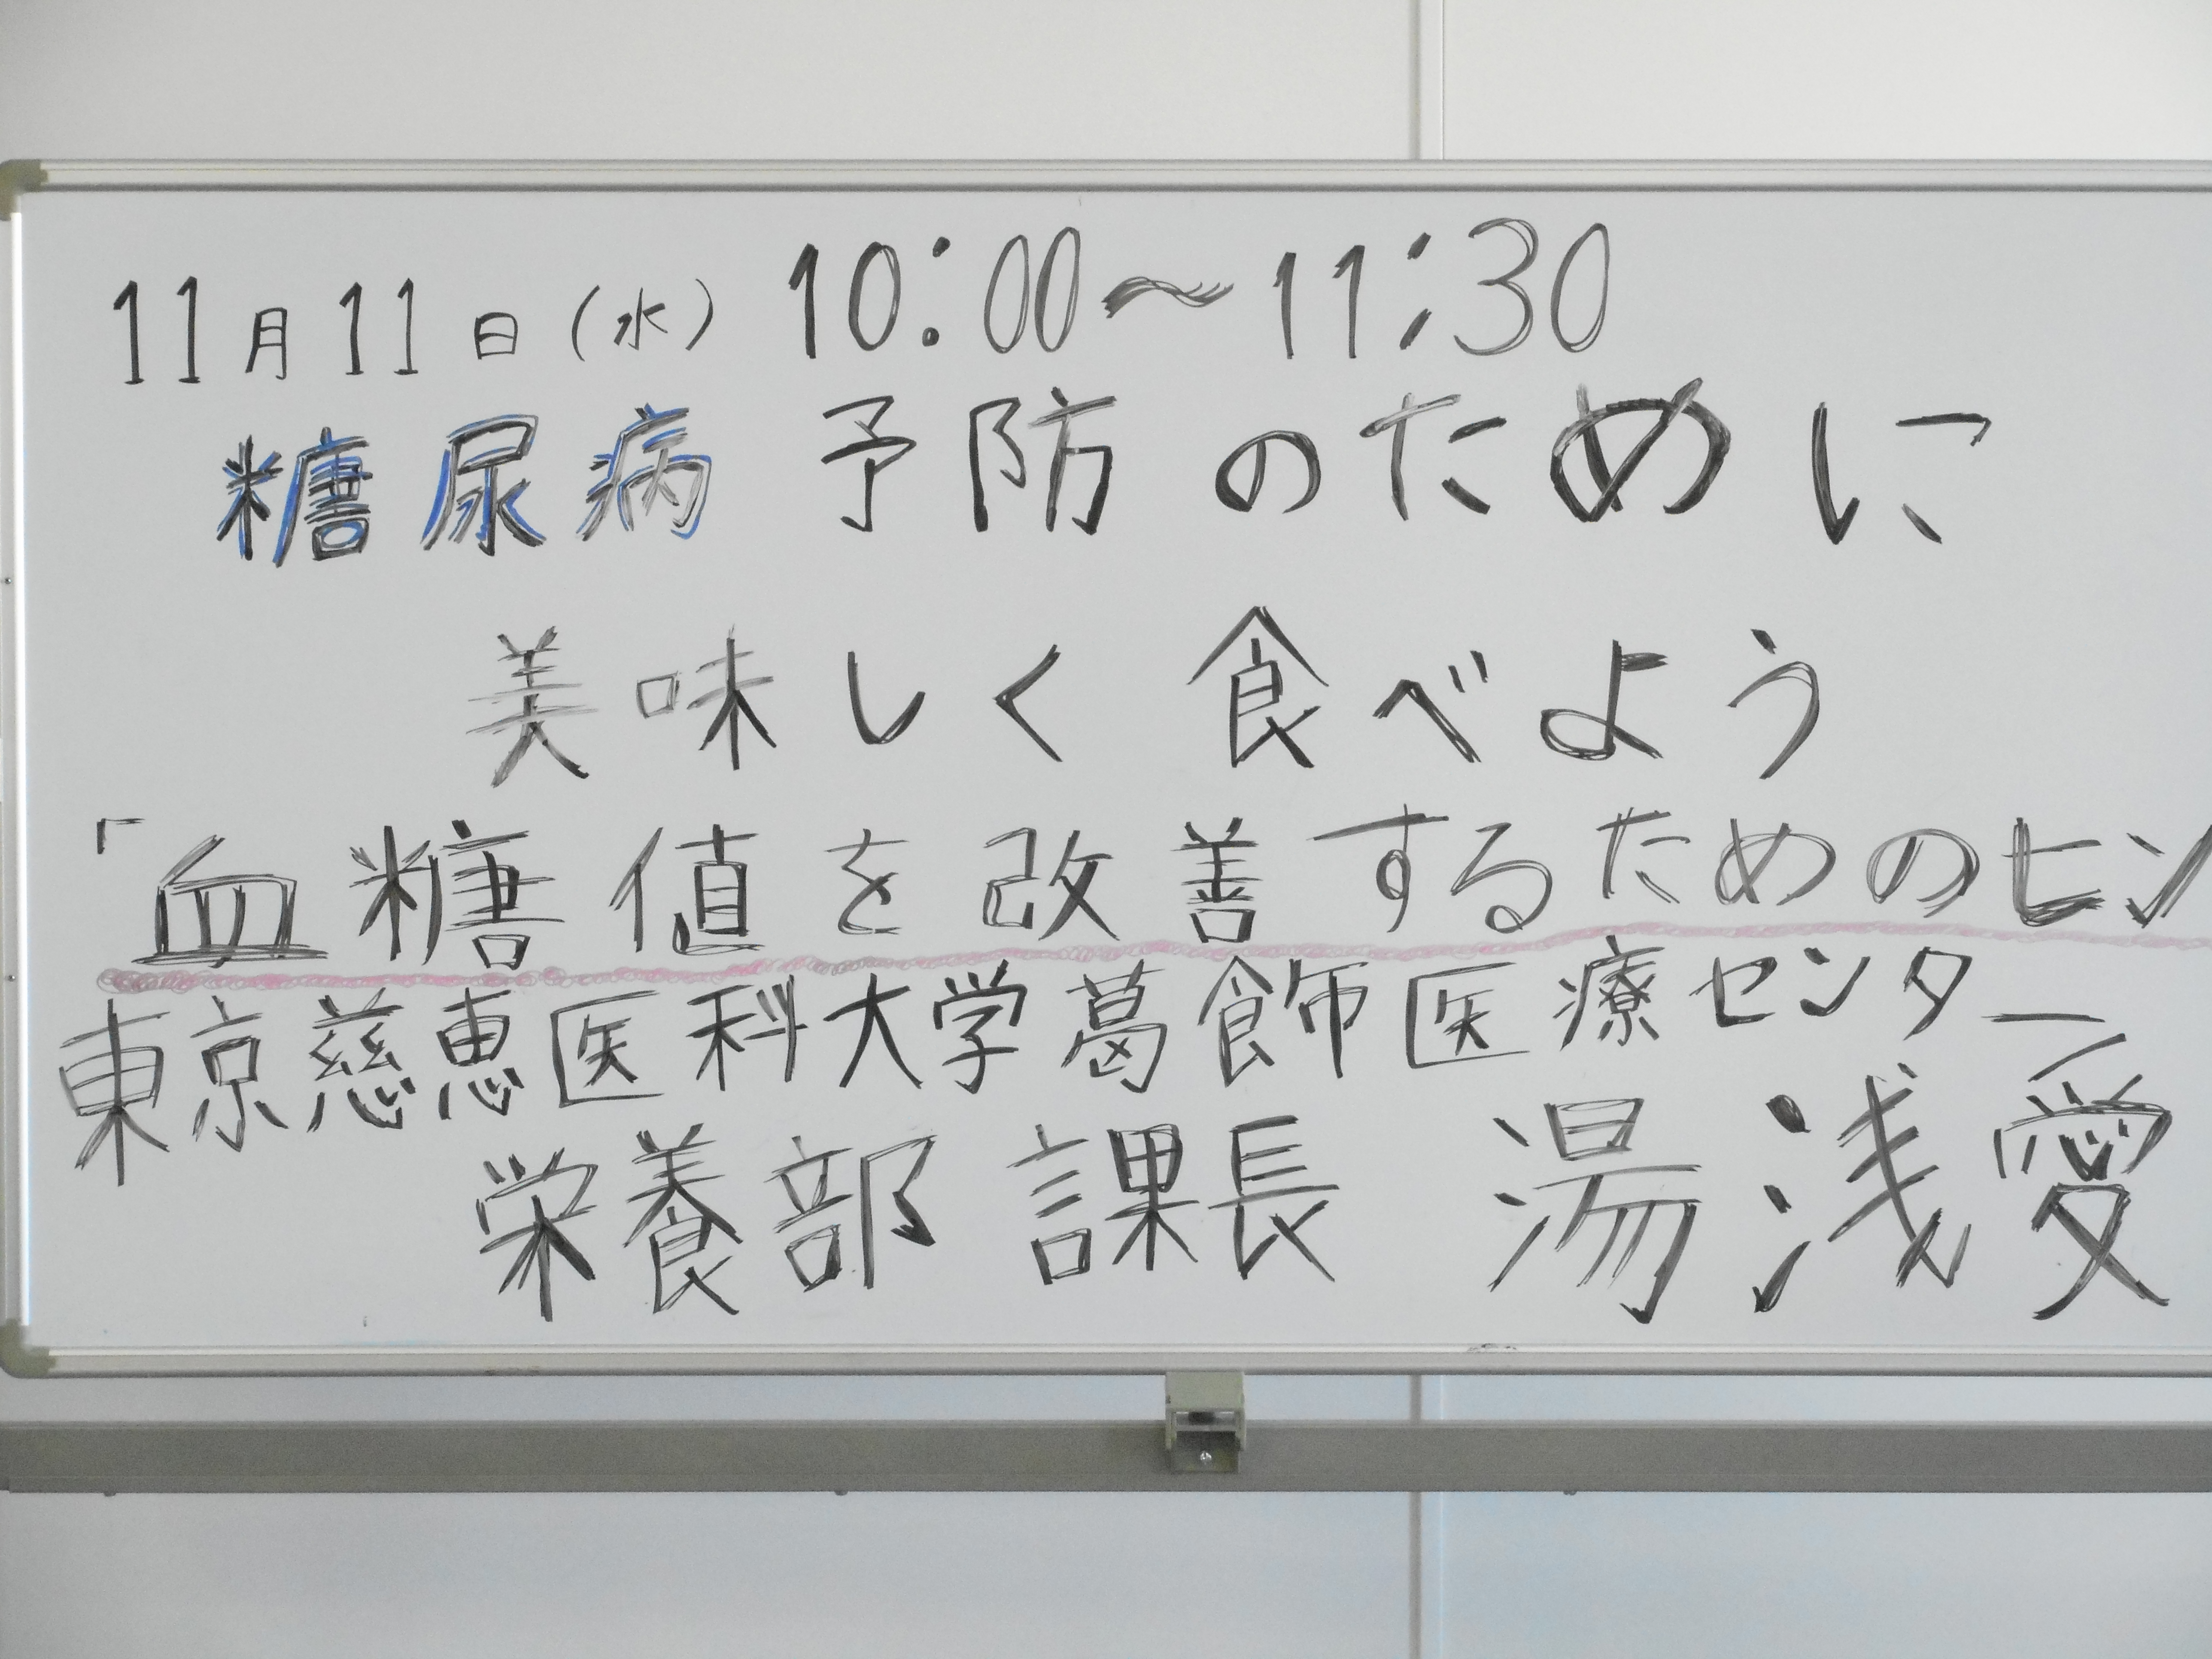 11月11日(水) 10:00～11:30
糖尿病予防のために
美味しく食べよう
「血糖値を改善するためのヒン
東京慈恵医科大学葛飾医療センター
栄養部 課長 湯浅愛